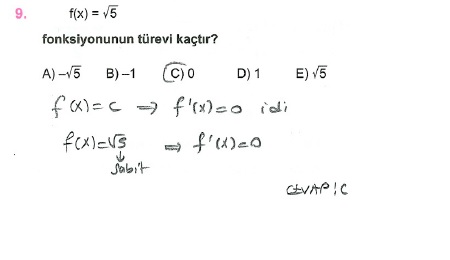 9. f(x) = √5
fonksiyonunun türevi kaçtır?
A) –√5 B) –1 C) 0 D) 1 E) √5
f(x) = c ⇒ f'(x) = 0 idi
f(x) = √5 ⇒ f'(x) = 0
↓
Sabit
CEVAP: C